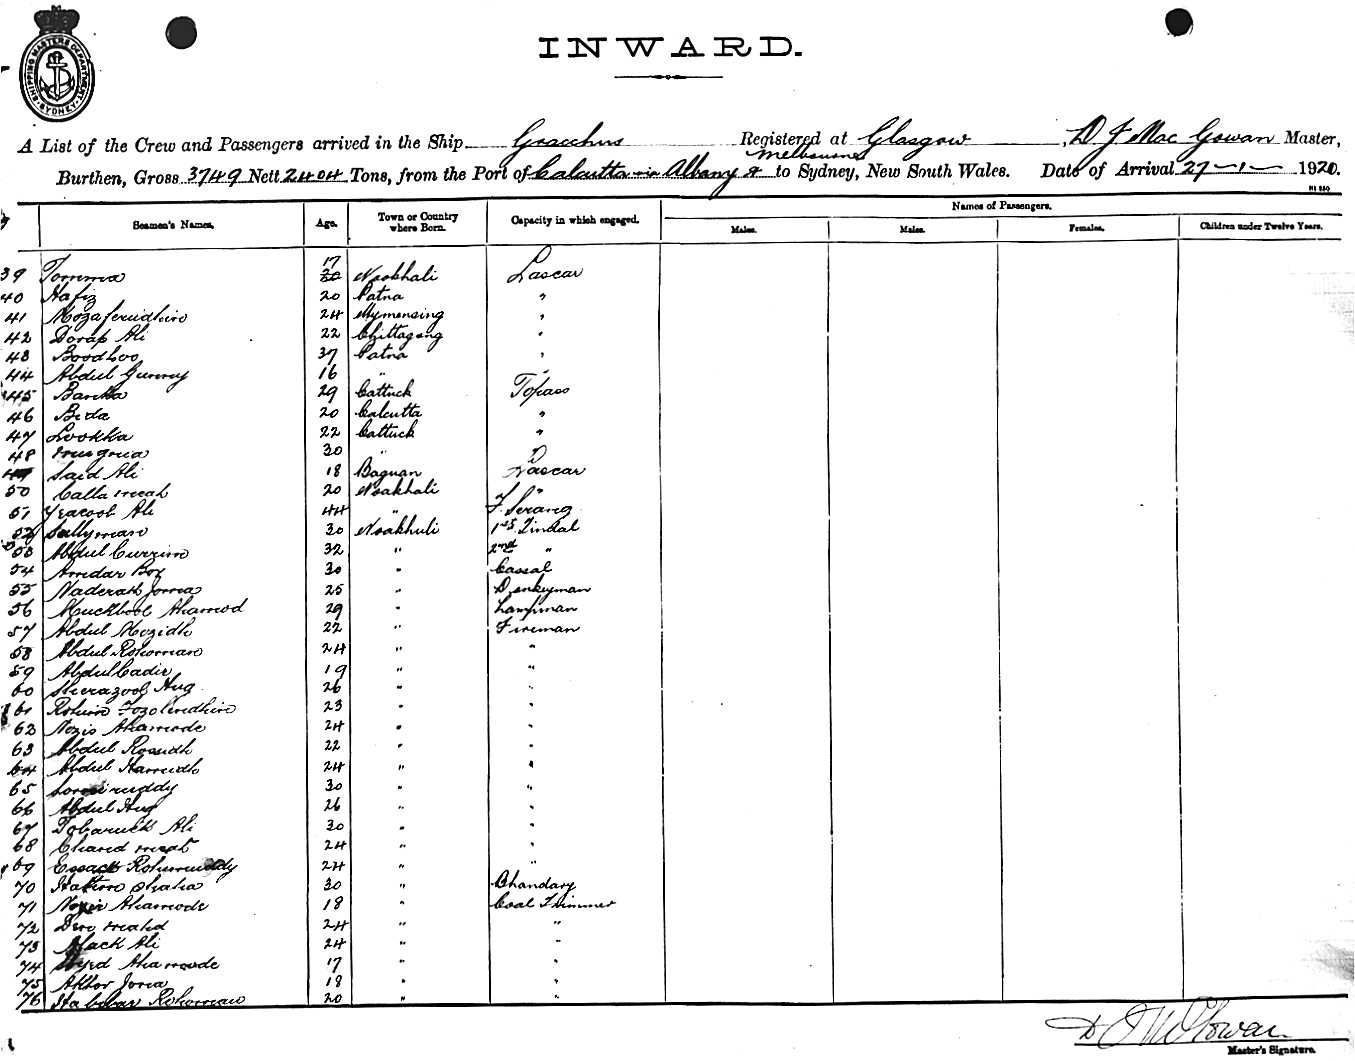 SHIPPING MASTERS DEPARTMENT SYDNEY
INWARD.
A List of the Crew and Passengers arrived in the Ship Gracchus Registered at Glasgow, D J Mac Gowan Master,
Melbourne
Burthen, Gross 3749 Nett 2404 Tons, from the Port of Calcutta via Albany & to Sydney, New South Wales. Date of Arrival 27-1-1920.
Seamen's Names. Age. Town or Country where Born. Capacity in which engaged. Names of Passengers.
Males. Males. Females. Children under Twelve Years.
17
39 Tomma 30 Noakhali Lascar
40 Hafiz 20 Patna "
41 Mozaferudhin 24 Mymensing "
42 Dorap Ali 22 Chittagong "
43 Boodhoo 37 Patna "
44 Abdul Gunny 16 " "
45 Banka 29 Cattuck Topass
46 Bida 20 Calcutta "
47 Lookka 22 Cattuck "
48 30 "
49 Said Ali 18 Bagnan Lascar
50 Calla meah 20 Noakhali "
51 Yeacoob Ali 44 " F. Serang
52 Sallyman 30 Noakhali 1st Tindal
53 Abdul Currim 32 " 2nd "
54 Amdar Box 30 " Cassab
55 Naderah Joma 25 " Donkeyman
56 Muckbool Ahamod 29 " Lampman
57 Abdul Mozidh 22 " Fireman
58 Abdul Rohoman 24 " "
59 Abdul Cadir 19 " "
60 Sherazool Hug 26 " "
61 Rohim Fozoleudhin 23 " "
62 Nozis Ahamode 24 " "
63 Abdul Rosudh 22 " "
64 Abdul Hamidh 24 " "
65 30 " "
66 Abdul Hug 26 " "
67 Tobaruck Ali 30 " "
68 Chand meah 24 " "
69 Essack Rohimuddy 24 " "
70 Hakim Shaha 30 " Bhandary
71 Nozir Ahamode 18 " Coal Trimmer
72 24 " "
73 Ali 24 " "
74 Syed Ahamode 17 " "
75 Aktor Joma 18 " "
76 Habibar Rohoman 20 " "
D J McGowan
Master's Signature.